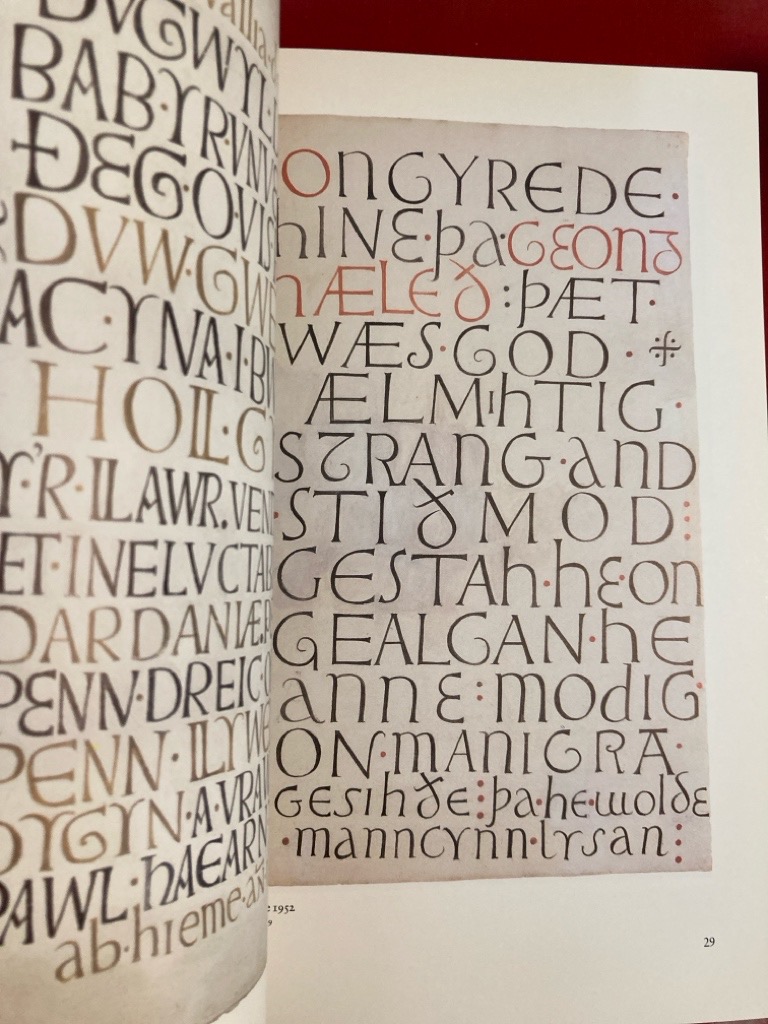 DVGWYL·
BAB·YR·VNV
ÐEG·O·VIS
DVW·GW
ACYNA·I·BV
HOLL·G
Y'R·LLAWR.VEN
ET·INELVCTAB
DARDANIÆ.
PENN·DREIC·O
PENN·LLYWE
DYGYN·A·VRA
PAWL·hAEARN
ab·hieme·añ
OnGYREDE·
hINE·þa·GEONG
hÆLEÐ:ÞÆT·
WÆS·GOD·
ÆLMIhTIG·
STRANG·AND
STIÐMOD⁝
GESTAh·hEON
GEALGAN·hE
anne:modIG·
ON·MANIGRA·
GESIhÐE⁝þa·hewolde
·manncynn·lysan⁝
1952
29